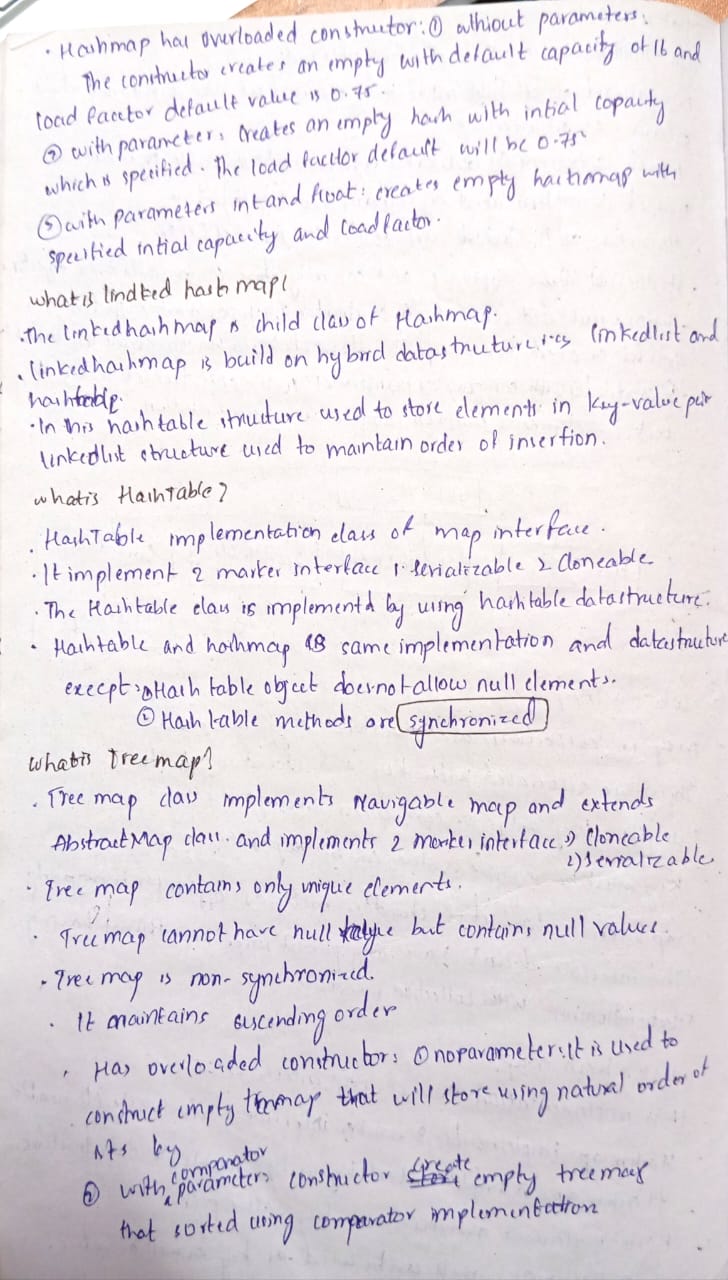 · Hashmap has overloaded constructor: ① without parameters:
The constructor creates an empty with default capacity of 16 and
load factor default value is 0.75.
② with parameters creates an empty hash with intial capacity
which is specified. The load facctor default will be 0.75
③ with parameters int and float: creates empty hashmap with
specified intial capacity and load factor.
what is lindked hash map?
· The linked hash map is child class of Hashmap.
· linked hashmap is build on hybrid datastructure linkedlist and
hashtable.
· In this hashtable structure used to store elements in key-value pair
linkedlist structure used to maintain order of insertion.
what is HashTable?
· HashTable implementation class of map interface.
· It implement 2 marker interface 1. serializable 2 Cloneable
· The Hashtable class is implementd by using hashtable datastructure.
· Hashtable and hashmap is same implementation and datastructure
execpt: ① Hash table object doesnot allow null elements.
② Hash table methods are synchronized
what is Tree map?
· Tree map class implements Navigable map and extends
AbstractMap class. and implements 2 marker interface 1) Cloneable
2) serializable
· Tree map contains only unique elements.
· Tree map cannot have null but contains null values.
· Tree map is non-synchronized.
· It maintains ascending order
· Has overloaded constructors ① noparameter: It is used to
construct empty that will store using natural order of
its key
comparator
② with parameters constructor create empty treemap
that sorted using comparator implementation